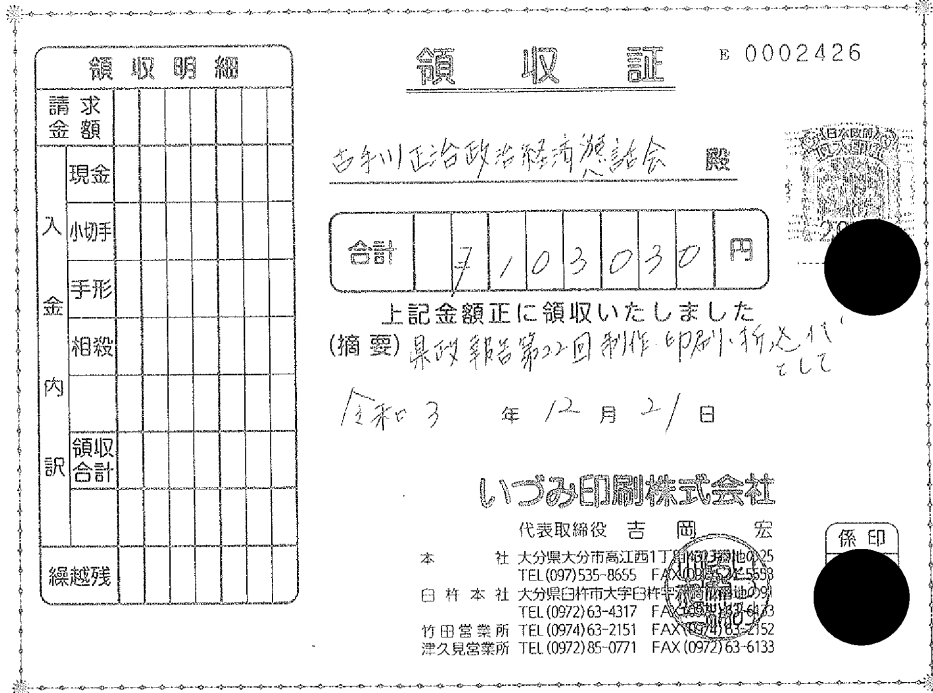 領収証
E 0002426
領収明細
請求金額
入金内訳
現金
小切手
手形
相殺
領収合計
繰越残
古手川正治政治経済懇話会 殿
日本政府
収入印紙
合計 7103030 円
上記金額正に領収いたしました
(摘要) 県政報告第22回制作・印刷・折込代
として
令和3年12月21日
いづみ印刷株式会社
代表取締役 吉岡 宏
本社 大分県大分市高江西1丁目4323番地の25
TEL(097)535-8655 FAX
臼杵本社 大分県臼杵市大字臼杵
TEL(0972)63-4317 FAX
竹田営業所 TEL(0974)63-2151 FAX(0974)63-2152
津久見営業所 TEL(0972)85-0771 FAX(0972)63-6133
係印